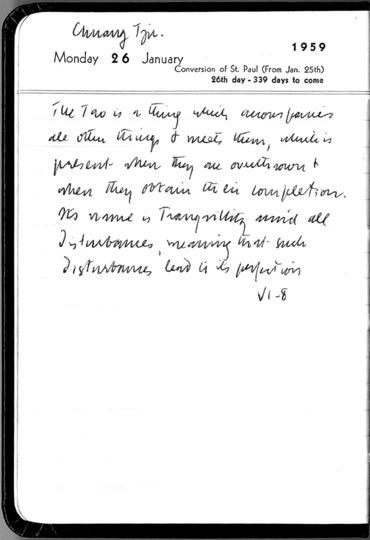 Chuang Tzu.
1959
Monday 26 January
Conversion of St. Paul (From Jan. 25th)
26th day - 339 days to come
The Tao is a thing which accompanies
all other things & meets them, which is
present when they are overthrown &
when they obtain their completion.
Its name is Tranquillity amid all
Disturbances, meaning that such
Disturbances lead to its perfection
VI-8